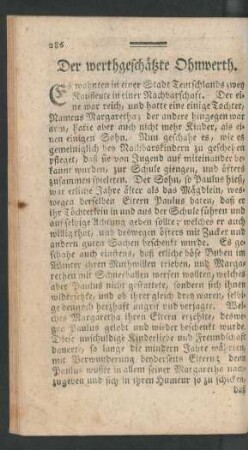 286
Der werthgeschätzte Ohnwerth.
Es wohnten in einer Stadt Teutschlands zwey
Kaufleute in einer Nachbarschaft. Der ei-
ne war reich, und hatte eine einige Tochter,
Namens Margaretha; der andere hingegen war
arm, hatte aber auch nicht mehr Kinder, als ei-
nen einigen Sohn. Nun geschahe es, wie es
gemeiniglich bey Nachbarskindern zu geschehen
pfleget, daß sie von Jugend auf miteinander be-
kannt wurden, zur Schule giengen, und öfters
zusammen spielten. Der Sohn, so Paulus hieß,
war etliche Jahre älter als das Mägdlein, wes-
wegen derselben Eltern Paulus baten, daß er
ihr Töchterlein in und aus der Schule führen und
auf selbige Achtung geben sollte; welches er auch
willig that, und deswegen öfters mit Zucker und
andern guten Sachen beschenkt wurde. Es ge-
schahe auch einstens, daß etliche böse Buben im
Winter ihren Muthwillen trieben, und Marga-
rethen mit Schneeballen werfen wollten, welches
aber Paulus nicht gestattete, sondern sich ihnen
widersetzte, und ob ihrer gleich drey waren, selbi-
ge dennoch herzhaft angrif und verjagte. Wel-
ches Margaretha ihren Eltern erzehlte, deswe-
gen Paulus gelobt und wieder beschenkt wurde.
Diese unschuldige Kinderliebe und Freundschaft
dauerte, so lange die mindern Jahre währten,
mit Verwunderung beyderseits Eltern; denn
Paulus wußte in allem seiner Margaretha nach-
zugeben und sich in ihren Humeur so zu schicken,
daß